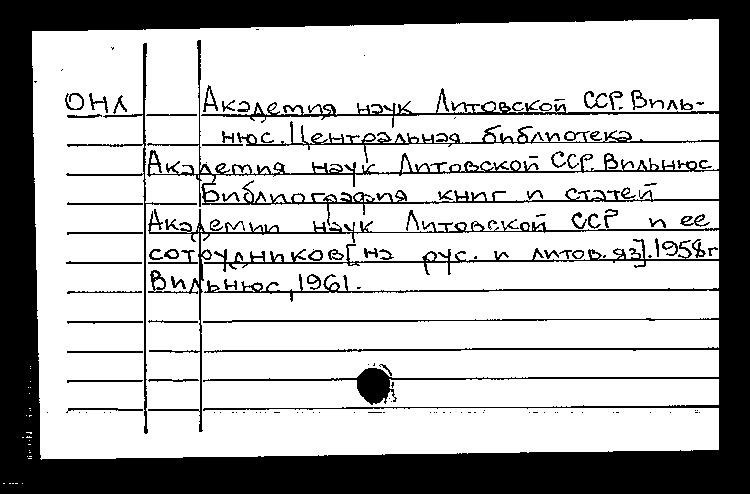 ОНЛ Академия наук Литовской ССР. Виль-
нюс. Центральная библиотека.
Академия наук Литовской ССР. Вильнюс
Библиография книг и статей
Академии наук Литовской ССР и ее
сотрудников [на рус. и литов. яз]. 1958г
Вильнюс, 1961.